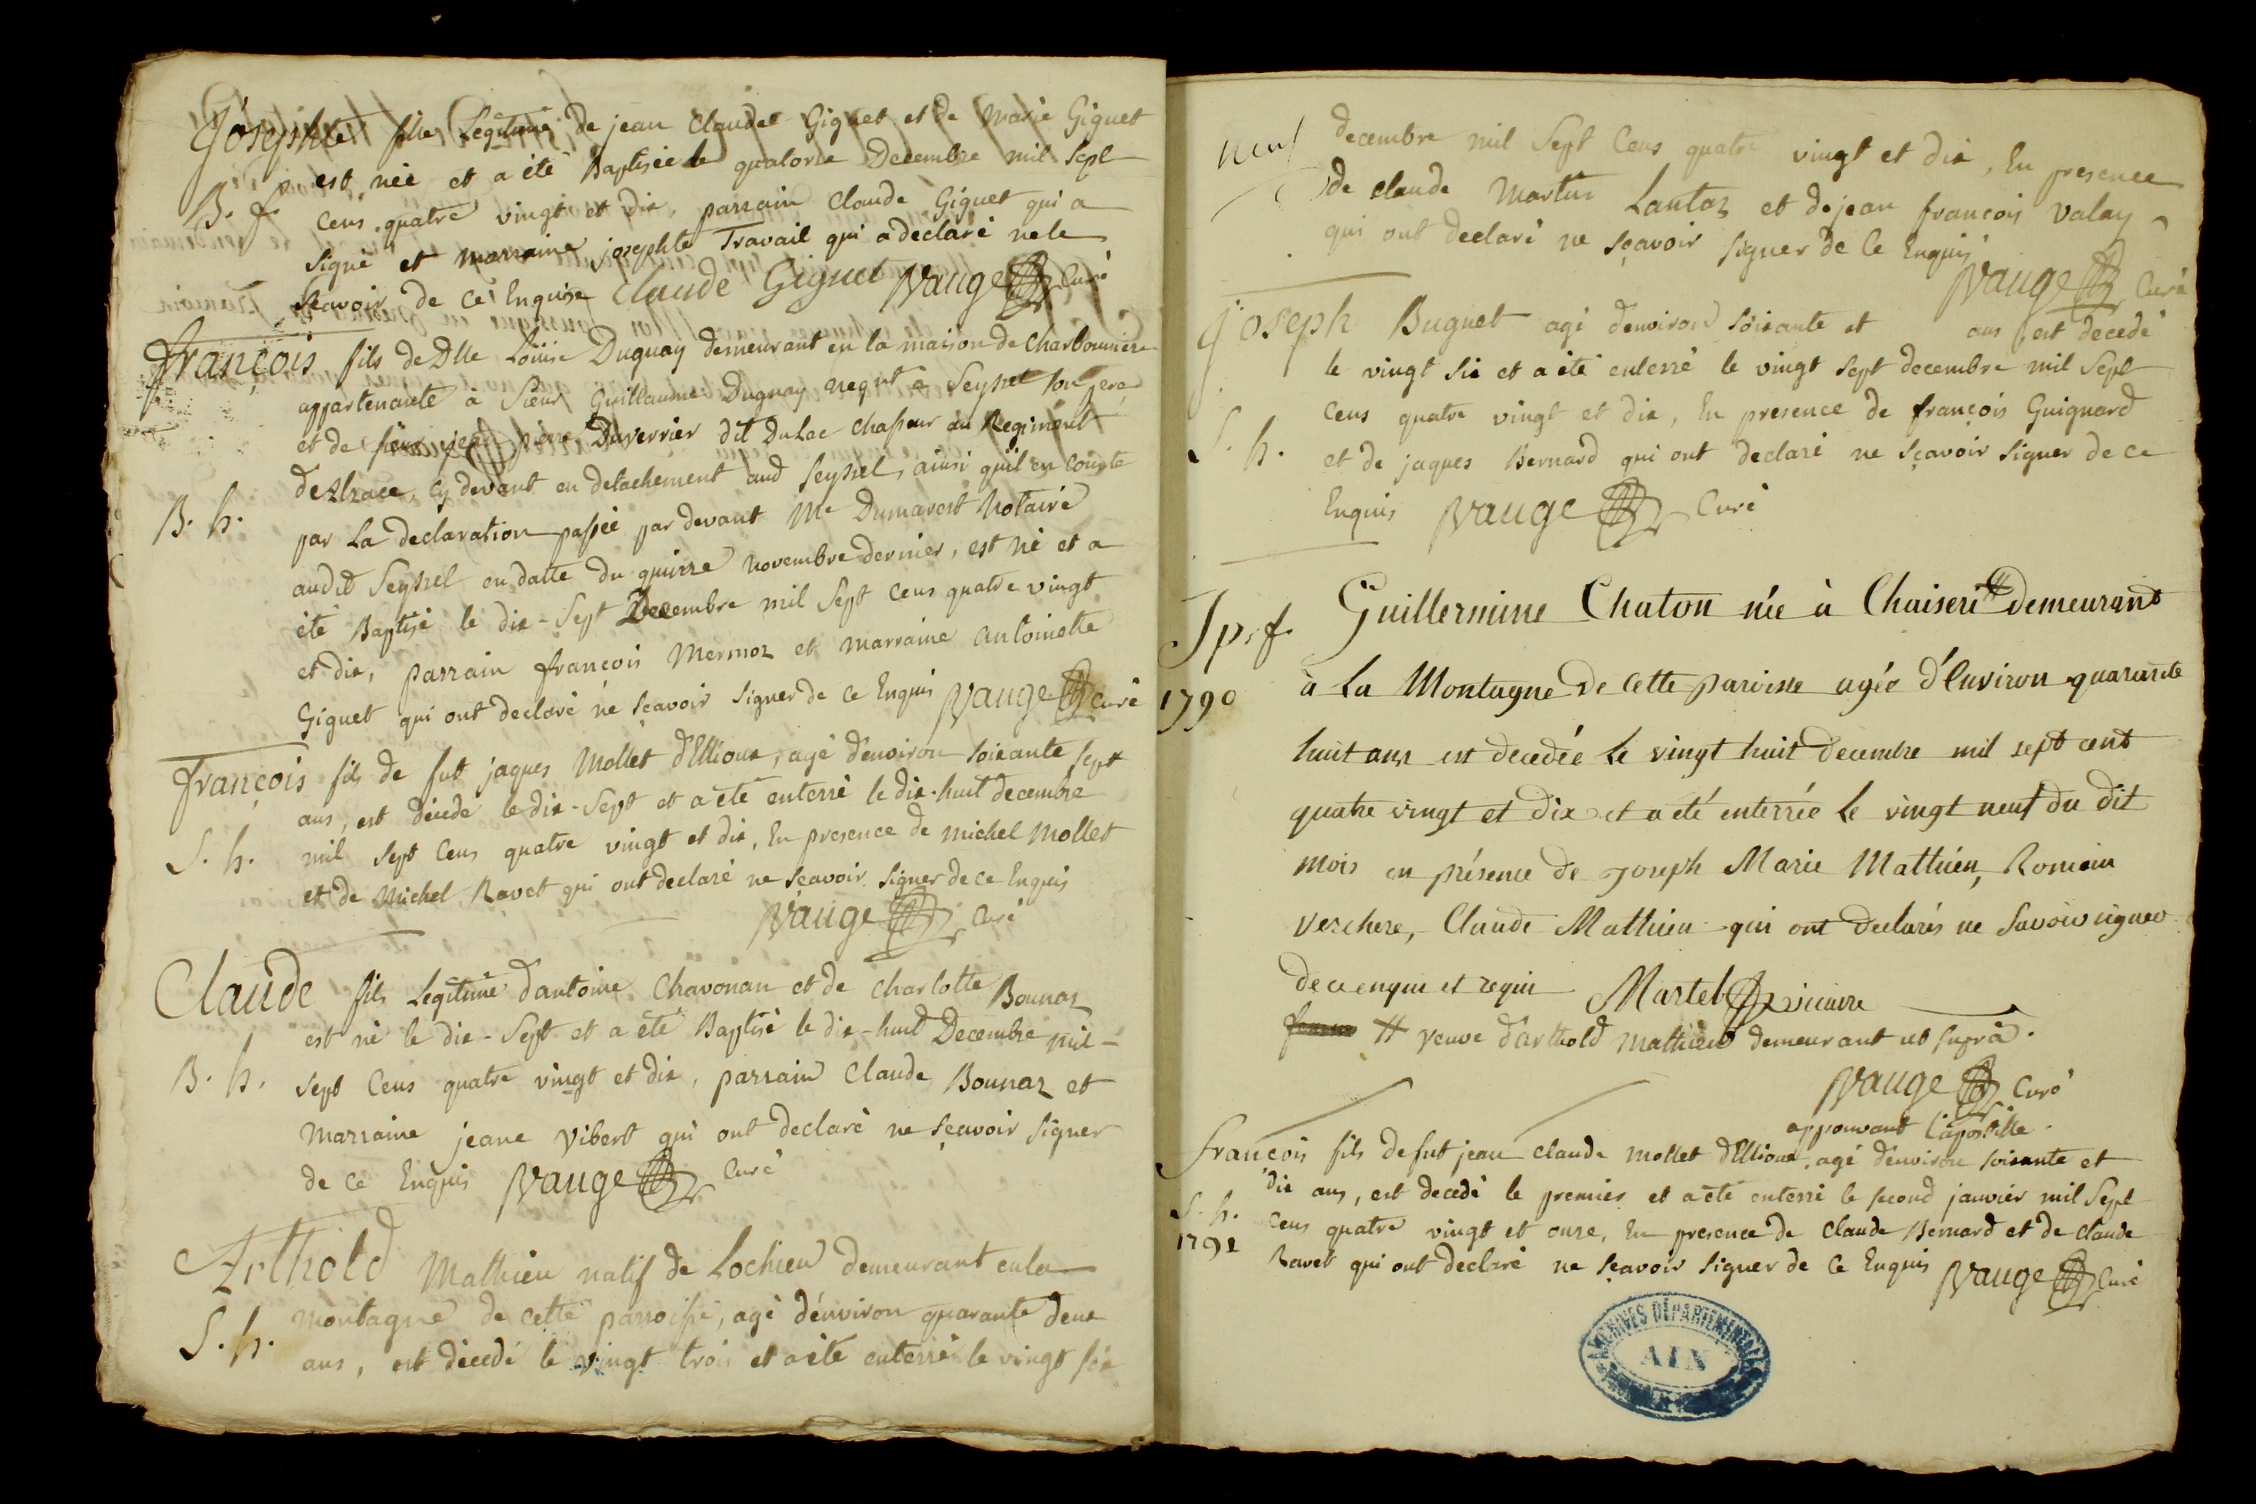 Josephte fille Legitime de jean Claude Giguet et de Marie Giguet
est née et a été Baptisée le quatorze Decembre mil Sept
B. f. Cens quatre vingt et dix, parrain Claude Giguet qui a
signé et marraine josephte Travail qui a declaré ne le
sçavoir de ce Enquise Claude Giguet Vauge Curé
françois fils de Dlle Louise Duguay demeurant en la maison de Charbonniere
appartenante à Sieur Guillaume Duguay negnt à Seyssel son pere
et de sieur jean pierre Duverrier dit Dulac chasseur au Regiment
d'Alzace, cy devant en detachement aud Seyssel, ainsi qu'il en conste
B. h. par La declaration passée par devant Me Dumarest Notaire
audit Seyssel en datte du quinze novembre dernier, est né et a
été Baptisé le dix-Sept Decembre mil Sept Cens quatre vingt
et dix, parrain françois Mermoz et marraine antoinette
Giguet qui ont declaré ne sçavoir signer de ce Enquis Vauge Curé
françois fils de fut jaques Mollet d'Ellioux, agé d'environ soixante sept
ans, est décédé le dix-Sept et a été enterré le dix-huit decembre
S. h. mil Sept Cens quatre vingt et dix, En presence de michel Mollet
et de Michel Ravet qui ont declaré ne sçavoir signer de ce Enquis
Vauge Curé
Claude fils Legitime d'antoine Chavonan et de charlotte Bounaz
est né le dix-Sept et a été Baptisé le dix-huit Decembre mil
B. h. Sept Cens quatre vingt et dix, parrain Claude Bounaz et
Marraine jeane Vibert qui ont declaré ne sçavoir signer
de ce Enquis Vauge Curé
Arthold Mathieu natif de Lochieu demeurant en la
S. h. montagne de cette parroisse, agé d'environ quarante deux
ans, est décédé le vingt trois et a été enterré le vingt
neuf decembre mil Sept Cens quatre vingt et dix, En presence
de claude Martin Lantaz et de jean françois Valay
qui ont declaré ne sçavoir signer de ce Enquis
Vauge Curé
joseph Buguet agé d'environ soixante et ans, est decedé
le vingt six et a été enterré le vingt sept decembre mil Sept
Cens quatre vingt et dix, En presence de françois Guignard
S. h. et de jaques Bernard qui ont declaré ne sçavoir signer de ce
Enquis Vauge Curé
Sp. f. Guillermine Chaton née à Chaiseri # demeurant
1790 à La Montagne de cette paroisse agée d'Environ quarante
huit ans est decedée Le vingt huit Decembre mil sept cent
quatre vingt et dix et a été enterrée Le vingt neuf du dit
mois en présence de joseph Marie Mathieu, Romain
Verchere, Claude Mathieu qui ont declarés ne Savoir signer
de ce enquis et requis Martel vicaire
# veuve d'arthold Mathieu demeurant ut suprà.
Vauge Curé
approuvant l'apostille.
François fils de fut jean claude Mollet d'Ellioux, agé d'environ soixante et
dix ans, est décédé le premier et a été enterré le second janvier mil Sept
S. h. Cens quatre vingt et onze, En presence de Claude Bernard et de claude
1791 Ravet qui ont declaré ne sçavoir signer de ce Enquis Vauge Curé
ARCHIVES DÉPARTEMENTALES
AIN